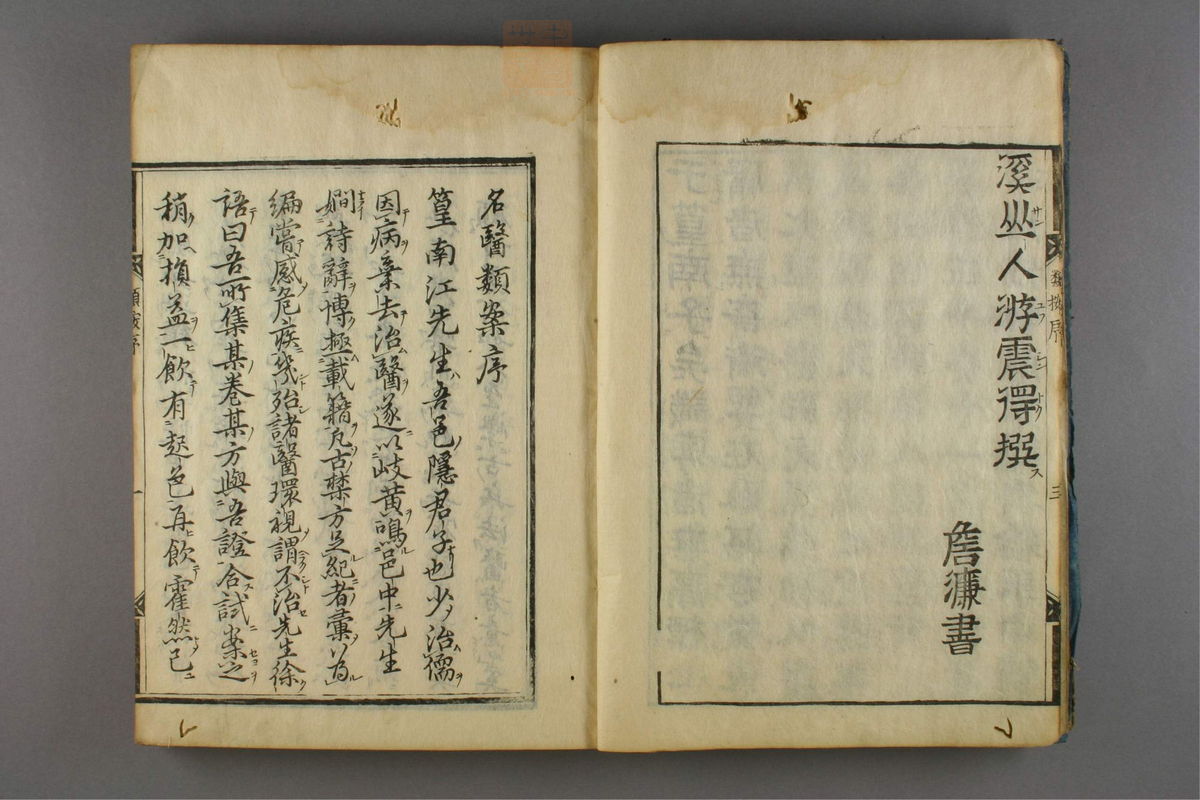 溪山一人游震得撰
詹濂書
類按序
三
名醫類案序
篁南江先生吾邑隱君子也少治儒
因病棄去治醫遂以岐黃鳴邑中先生
嫺詩辭博極載籍凡古禁方足紀者彙以為
編嘗感危疾幾殆諸醫環視謂不治先生徐
語曰吾所集某卷某方與吾證合試案之
稍加損益一飲有起色再飲霍然已